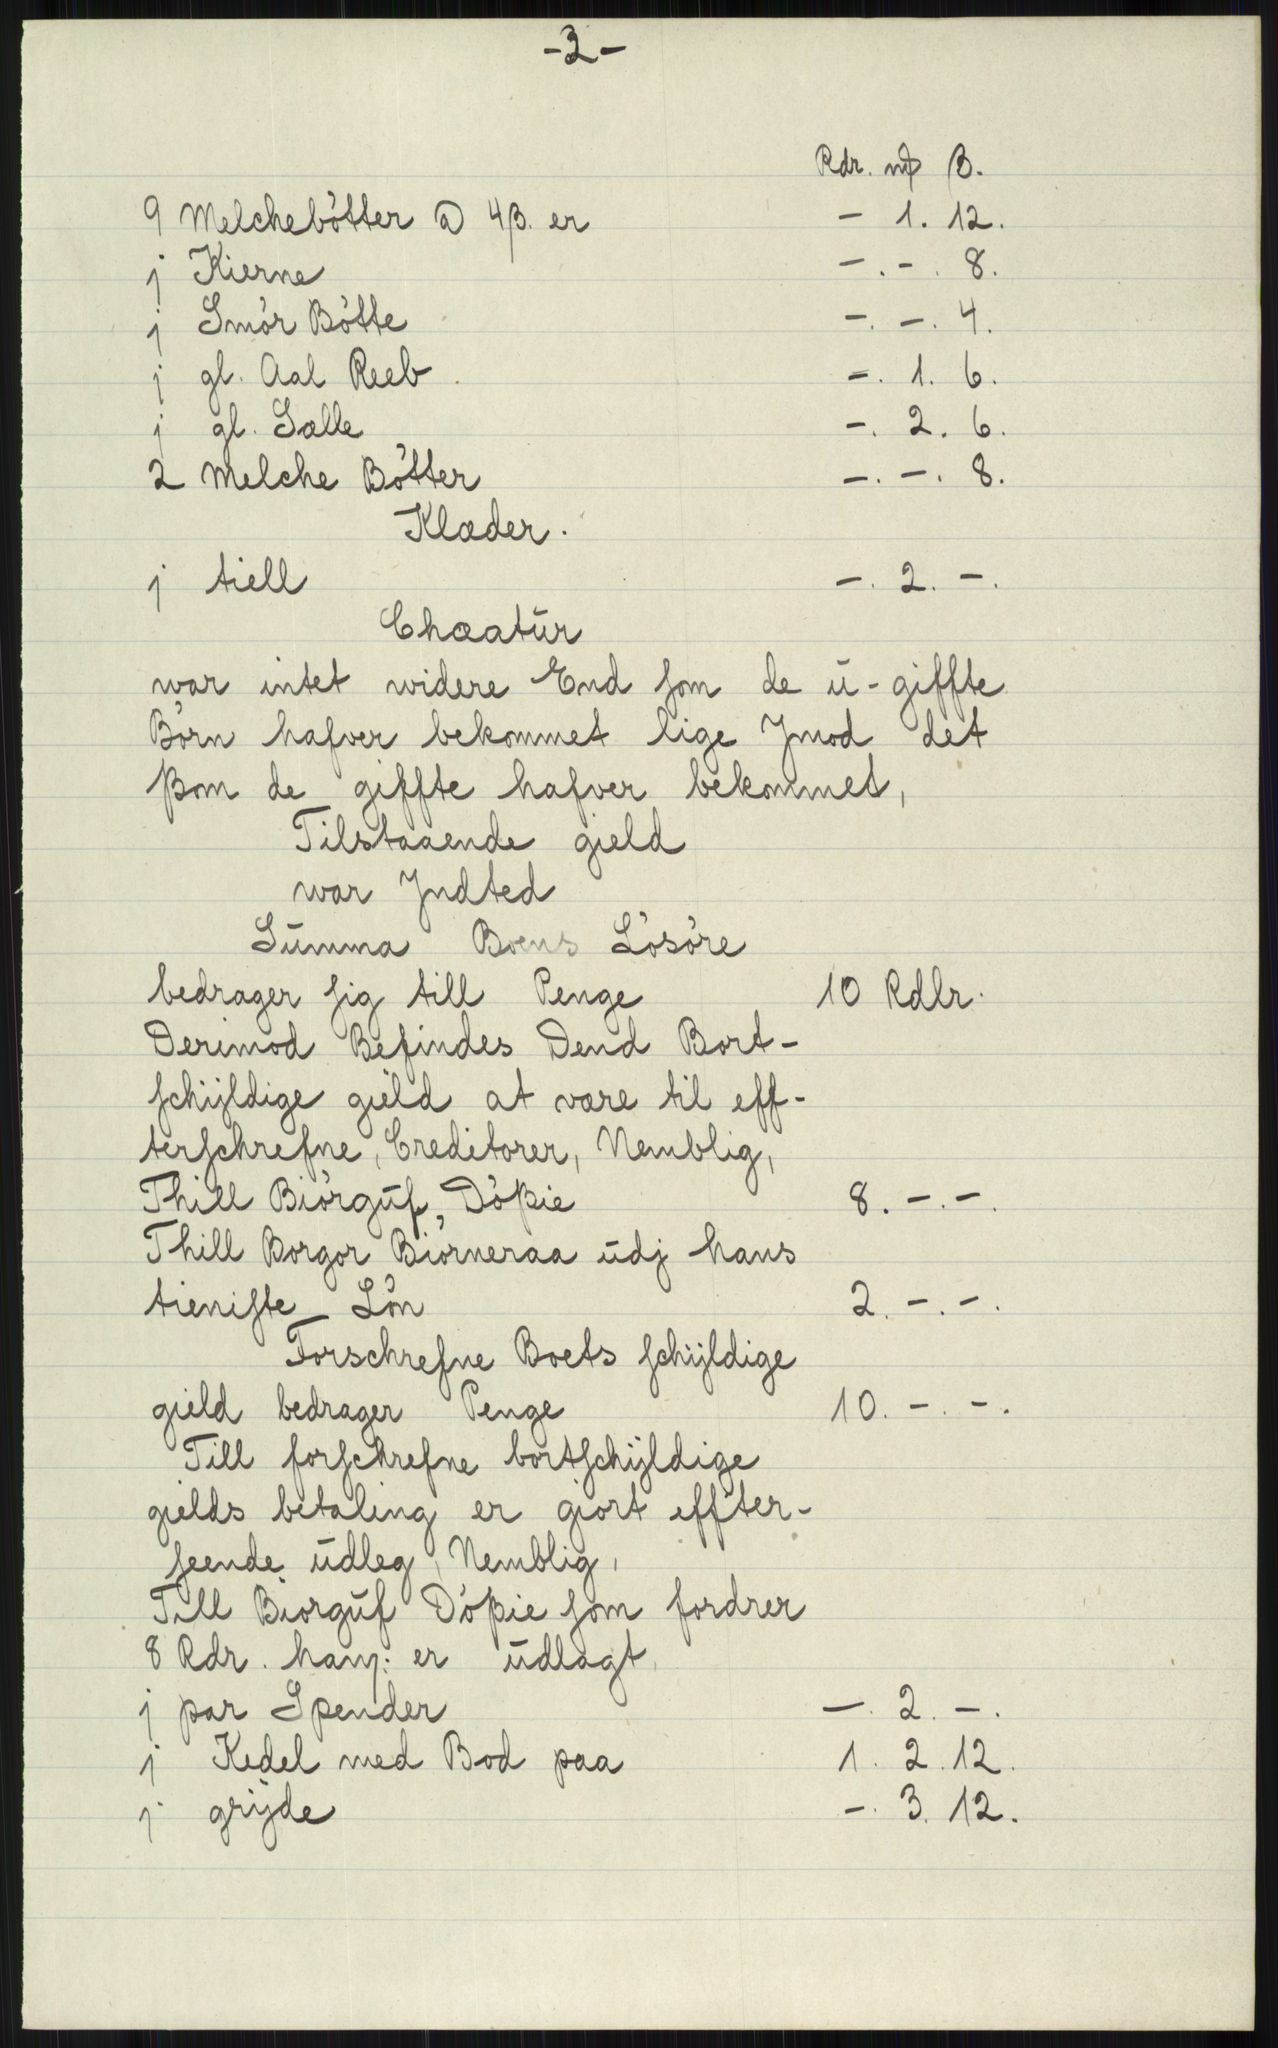 -3-
Rdr. mꝭ β.
9 Melchebötter a 4β. er - 1. 12.
j Kierne -. -. 8.
j Smör Bötte -. -. 4.
j gl. Aal Reeb -. 1. 6.
j gl. Salle -. 2. 6.
2 Melche Bötter -. -. 8.
Klæder.
j tiell -. 2. -.
Chæatūr
war intet widere End som de ū-giffte
Börn hafver bekommet lige Jmod det
βom de giffte hafver bekommet,
Tilstaaende gield
war Jndted
Sūmma Boens Lösöre
bedrager sig till Penge 10 Rdlr.
Derimod Befindes Dend Bort-
schÿldige gield at være til eff-
terschrefne, Creditorer, Nemblig,
Thill Biörgūf, Döβie 8. -. -.
Thill Borgor Biörneraa ūdj hans
tieniste Lön 2. -. -.
Forschrefne Boets schÿldige
gield bedrager Penge 10. -. -.
Till forschrefne bortschÿldige
gields betaling er giort effter-
seende ūdleg, Nemblig,
Till Biörgūf Döβie som fordrer
8 Rdr. hanj: er ūdlagt,
j par Spender -. 2. -.
j Kedel med Bod paa 1. 2. 12.
j grÿde -. 3. 12.